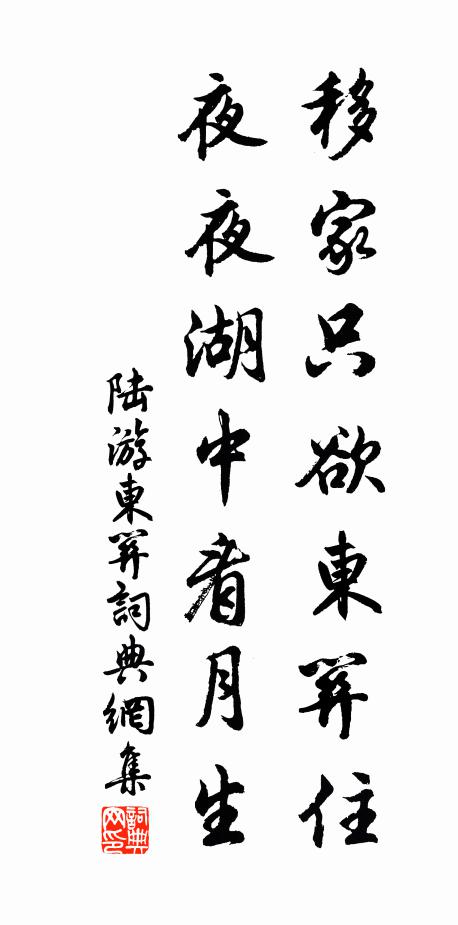 移家只欲東關住
夜夜湖中看月生
陆游東關詞典網集
詞典网印